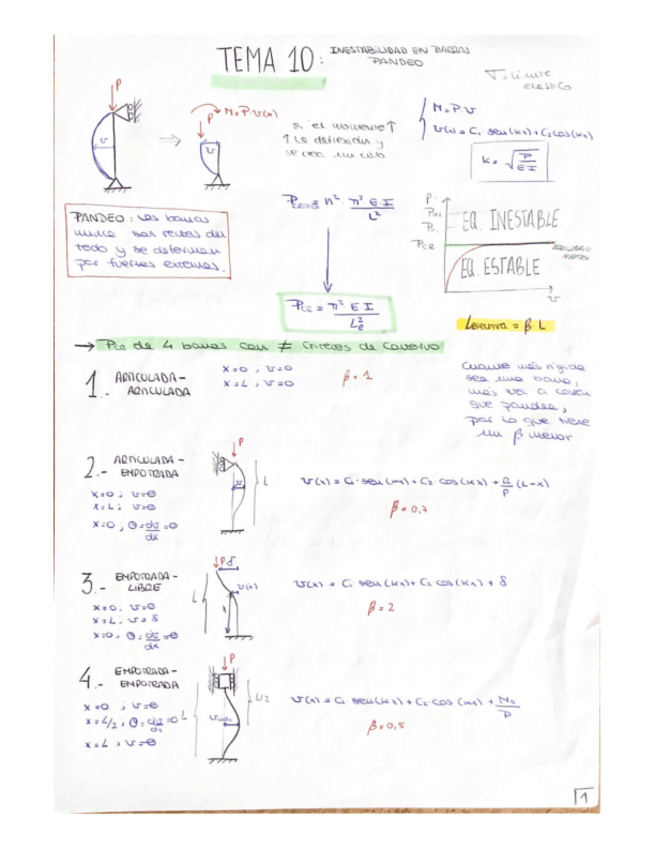 TEMA 10: INESTABILIDAD EN BARRAS
PANDEO
σ: límite
elástico
P
M=P·v(x)
P
v
v
Si el momento ↑
↑ la deflexión y
se crea un ciclo
M=P·v
v(x)=C₁·sen(kx)+C₂cos(kx)
k=√(P/EI)
PANDEO: Las barras
nunca son rectas del
todo y se deforman
por fuerzas externas.
n²·π²·E·I/L²
PCR=π² E I/Le²
PCR
EQ. INESTABLE
EQ. ESTABLE
v
Lefectiva = β L
→ PCR de 4 barras con ≠ criterios de contorno
1.- ARTICULADA-
ARTICULADA
x=0 ; v=0
x=L ; v=0
β=1
Cuanto más rígida
sea una barra,
más va a costar
que pandee,
por lo que tiene
un β menor
2.- ARTICULADA-
EMPOTRADA
x=0 ; v=0
x=L ; v=0
x=0 ; θ=dv/dx=0
P
L
v(x) = C₁·sen(kx)+C₂·cos(kx)+R/P(L-x)
β=0,7
3.- EMPOTRADA-
LIBRE
x=0, v=0
x=L, v=δ
x=0, θ=dv/dx=0
P δ
v(x)
L
v(x) = C₁ sen(kx)+C₂ cos(kx)+δ
β=2
4.- EMPOTRADA-
EMPOTRADA
x=0 ; v=0
x=L/2 ; θ=dv/dx=0
x=L ; v=0
P
L
L/2
v(x)=C₁ sen(kx)+C₂·cos(kx)+M₀/P
β=0,5
1